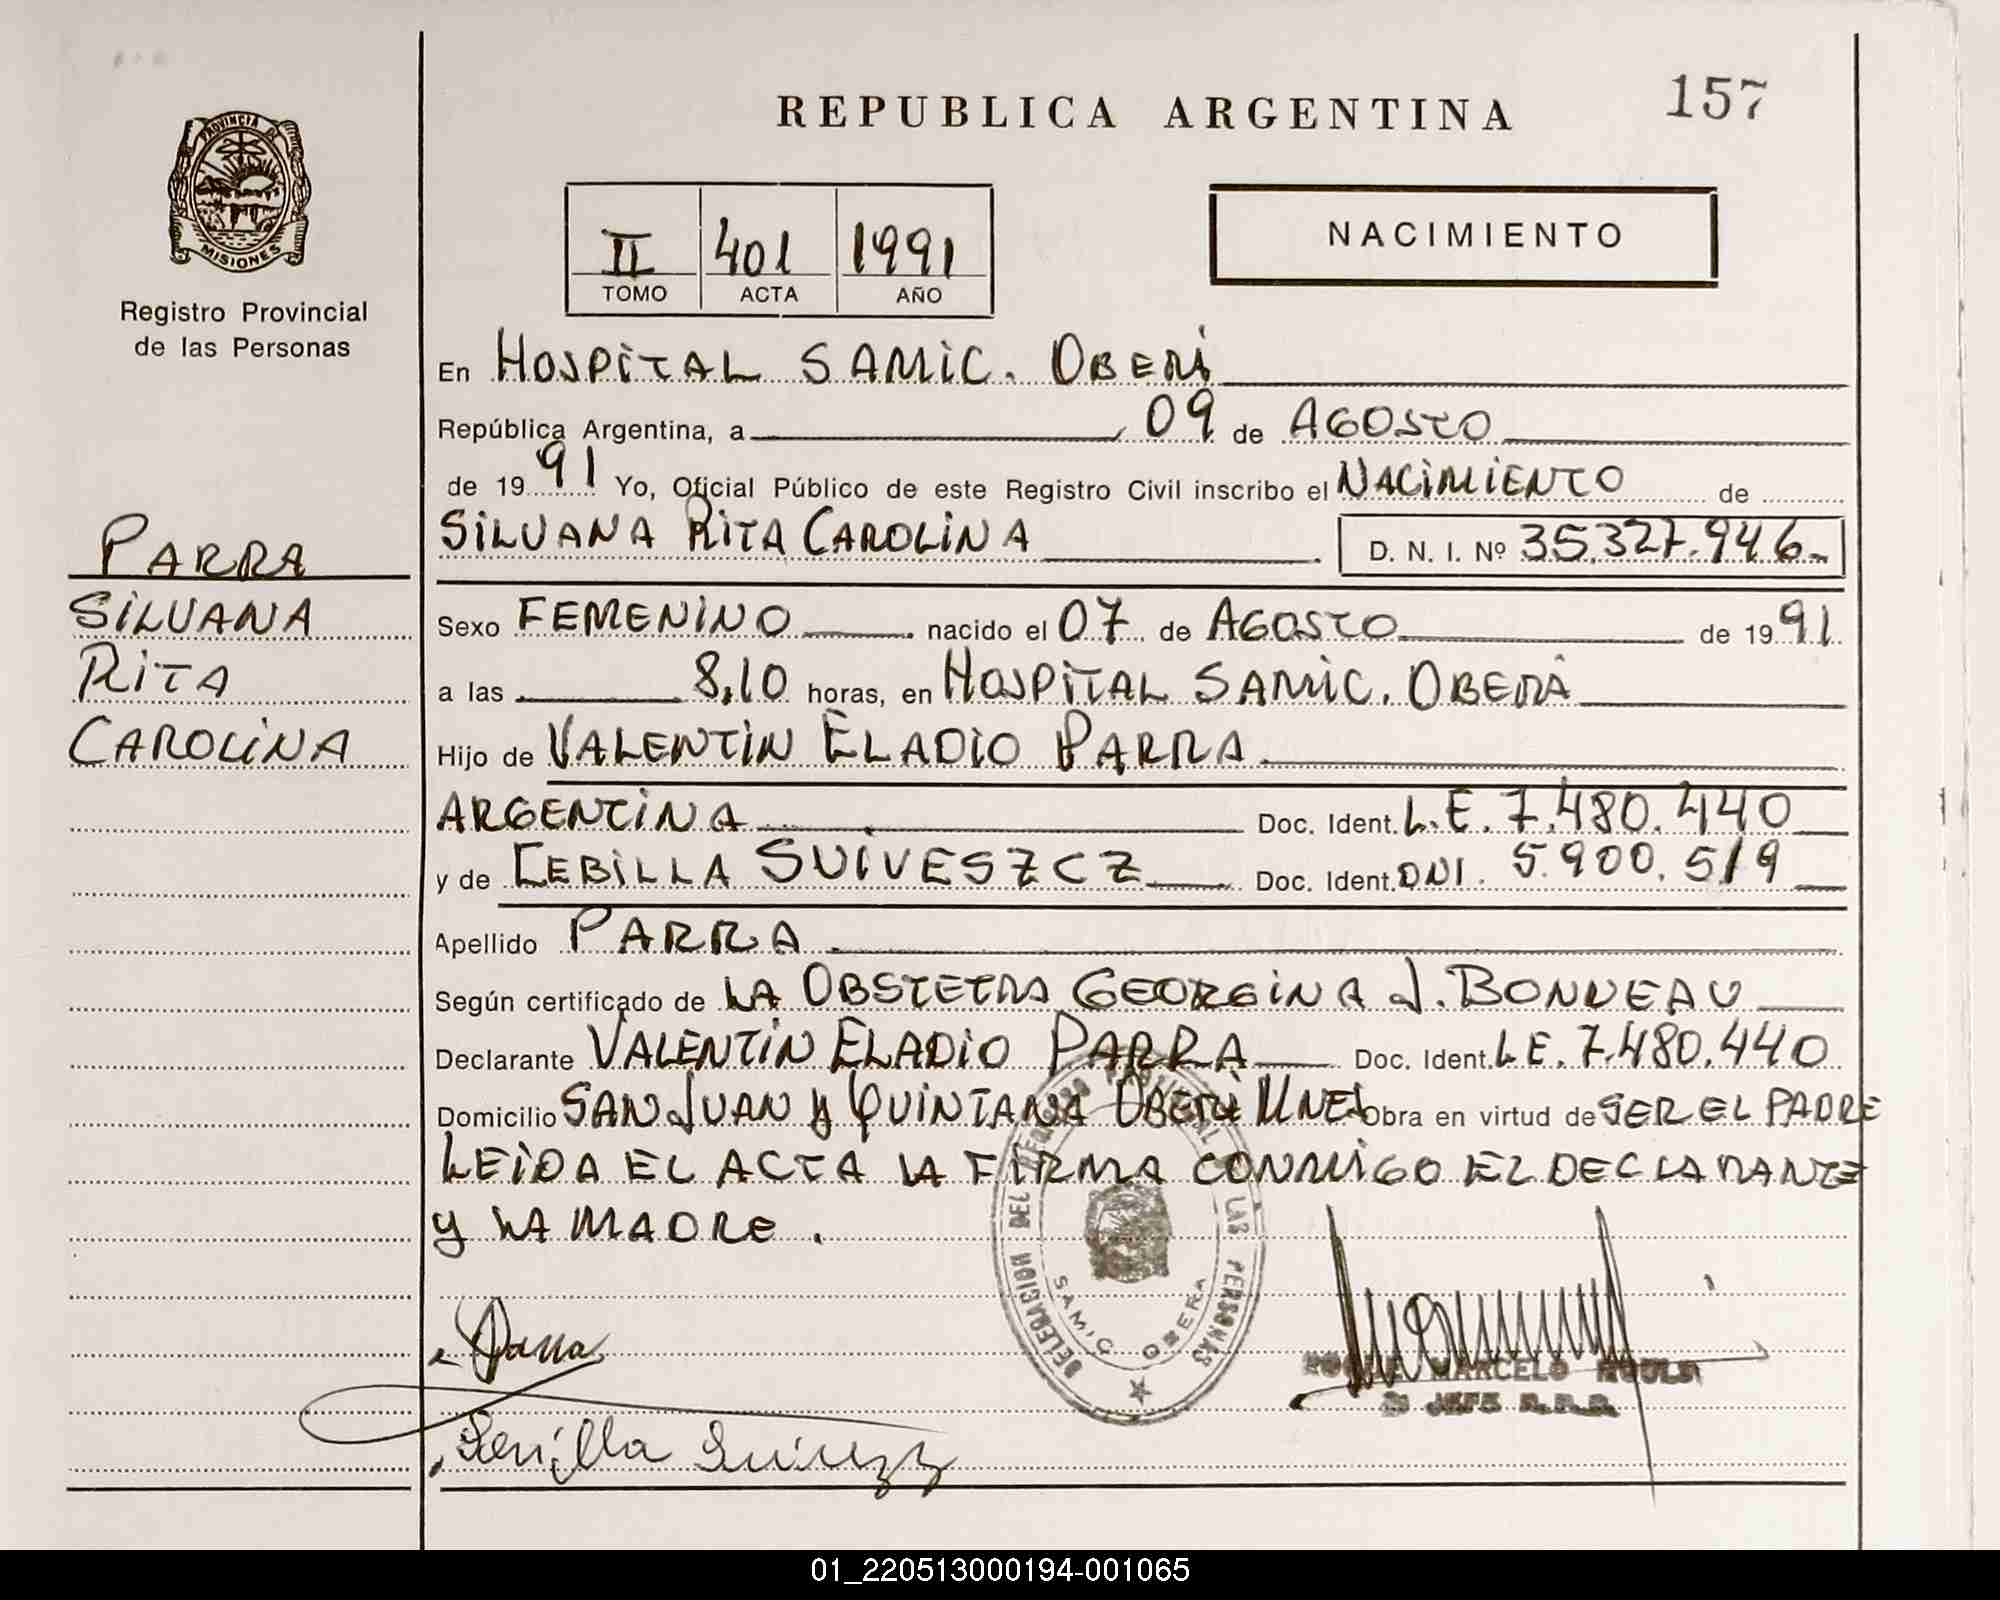 157
REPUBLICA ARGENTINA
PROVINCIA DE
MISIONES
Registro Provincial
de las Personas
II 401 1991
TOMO ACTA AÑO
NACIMIENTO
En HOSPITAL SAMIC. OBERÁ
República Argentina, a 09 de AGOSTO
de 1991 Yo, Oficial Público de este Registro Civil inscribo el NACIMIENTO de
SILVANA RITA CAROLINA D. N. I. Nº 35.327.946
PARRA
SILVANA
RITA
CAROLINA
Sexo FEMENINO nacido el 07 de AGOSTO de 1991
a las 8,10 horas, en HOSPITAL SAMIC. OBERÁ
Hijo de VALENTIN ELADIO PARRA
ARGENTINA Doc. Ident. L.E. 7.480.440
y de CEBILLA SUIVESZCZ Doc. Ident. DNI. 5.900.519
Apellido PARRA
Según certificado de LA OBSTETRA GEORGINA J. BONNEAU
Declarante VALENTIN ELADIO PARRA Doc. Ident. L.E. 7.480.440
Domicilio SAN JUAN Y QUINTANA OBERÁ MNES Obra en virtud de SER EL PADRE
LEIDA EL ACTA LA FIRMA CONMIGO EL DECLARANTE
Y LA MADRE.
DELEGACION DEL REGISTRO PROVINCIAL DE LAS PERSONAS
SAMIC OBERA
Parra
MARCELO
JEFE R.P.P.
01_220513000194-001065